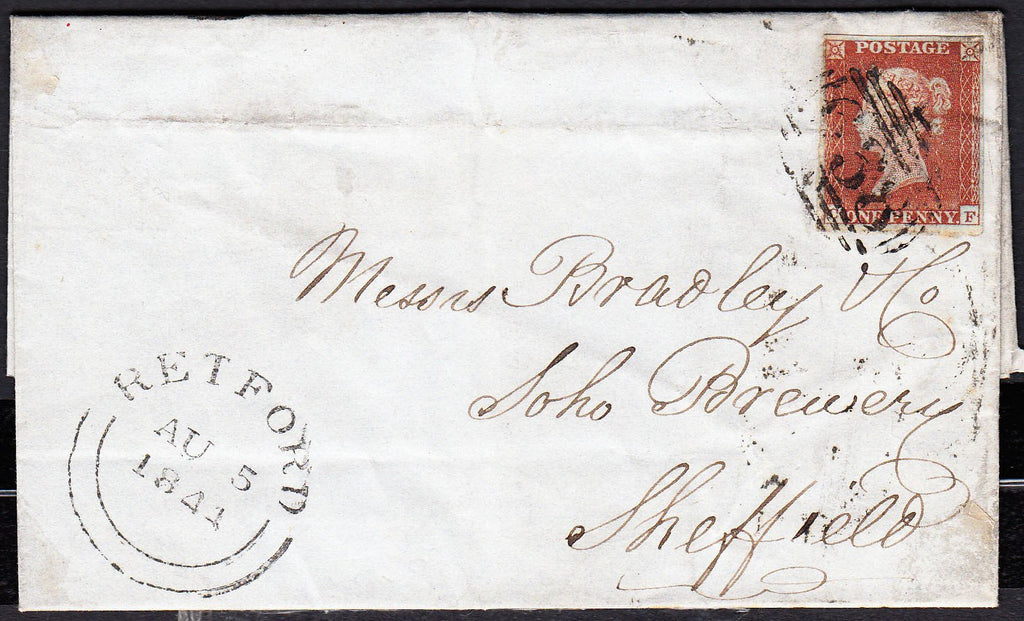 POSTAGE
ONE PENNY
F
Messrs Bradley & Co
Soho Brewery
Sheffield
RETFORD
AU 5
1841